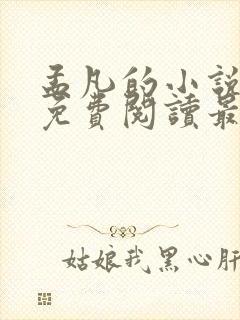 孟凡的小說
免費閱讀最
姑娘我黑心肝